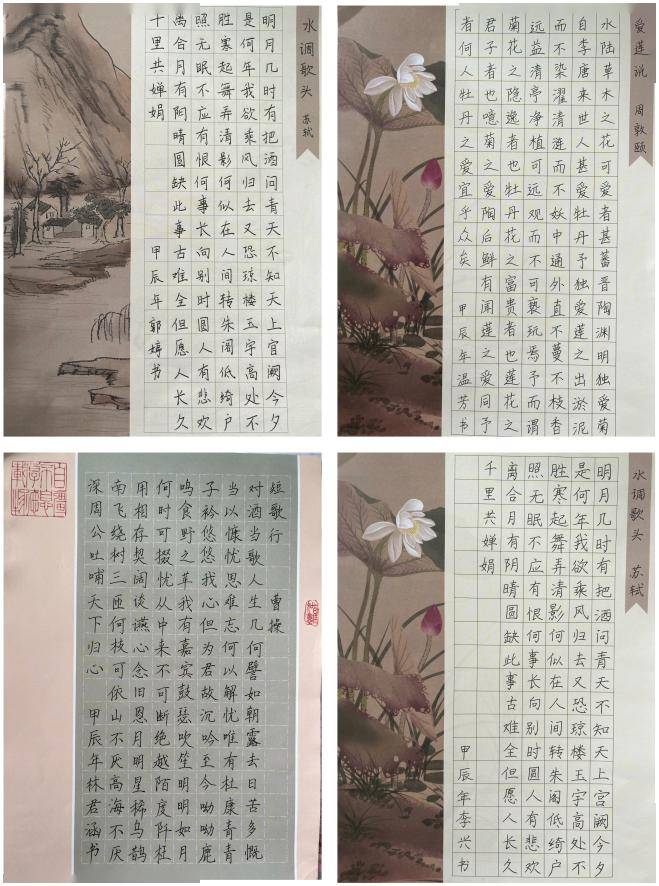 水调歌头 苏轼
明月几时有把酒问青天不知天上宫阙今夕
是何年我欲乘风归去又恐琼楼玉宇高处不
胜寒起舞弄清影何似在人间转朱阁低绮户
照无眠不应有恨何事长向别时圆人有悲欢
离合月有阴晴圆缺此事古难全但愿人长久
千里共婵娟 甲辰年郭婷书
爱莲说 周敦颐
水陆草木之花可爱者甚蕃晋陶渊明独爱菊
自李唐来世人甚爱牡丹予独爱莲之出淤泥
而不染濯清涟而不妖中通外直不蔓不枝香
远益清亭净植可远观而不可亵玩焉予而谓
菊花之隐逸者也牡丹花之富贵者也莲花之
君子者也噫菊之爱陶后鲜有闻莲之爱同予
者何人牡丹之爱宜乎众矣 甲辰年温芳书
短歌行 曹操
对酒当歌人生几何譬如朝露去日苦多慨
当以慷忧思难忘何以解忧唯有杜康青青
子衿悠悠我心但为君故沉吟至今呦呦鹿
鸣食野之苹我有嘉宾鼓瑟吹笙明明如月
何时可掇忧从中来不可断绝越陌度阡枉
用相存契阔谈讌心念旧恩月明星稀乌鹊
南飞绕树三匝何枝可依山不厌高海不厌
深周公吐哺天下归心 甲辰年林君涵书
水调歌头 苏轼
明月几时有把酒问青天不知天上宫阙今夕
是何年我欲乘风归去又恐琼楼玉宇高处不
胜寒起舞弄清影何似在人间转朱阁低绮户
照无眠不应有恨何事长向别时圆人有悲欢
离合月有阴晴圆缺此事古难全但愿人长久
千里共婵娟 甲辰年李兴书